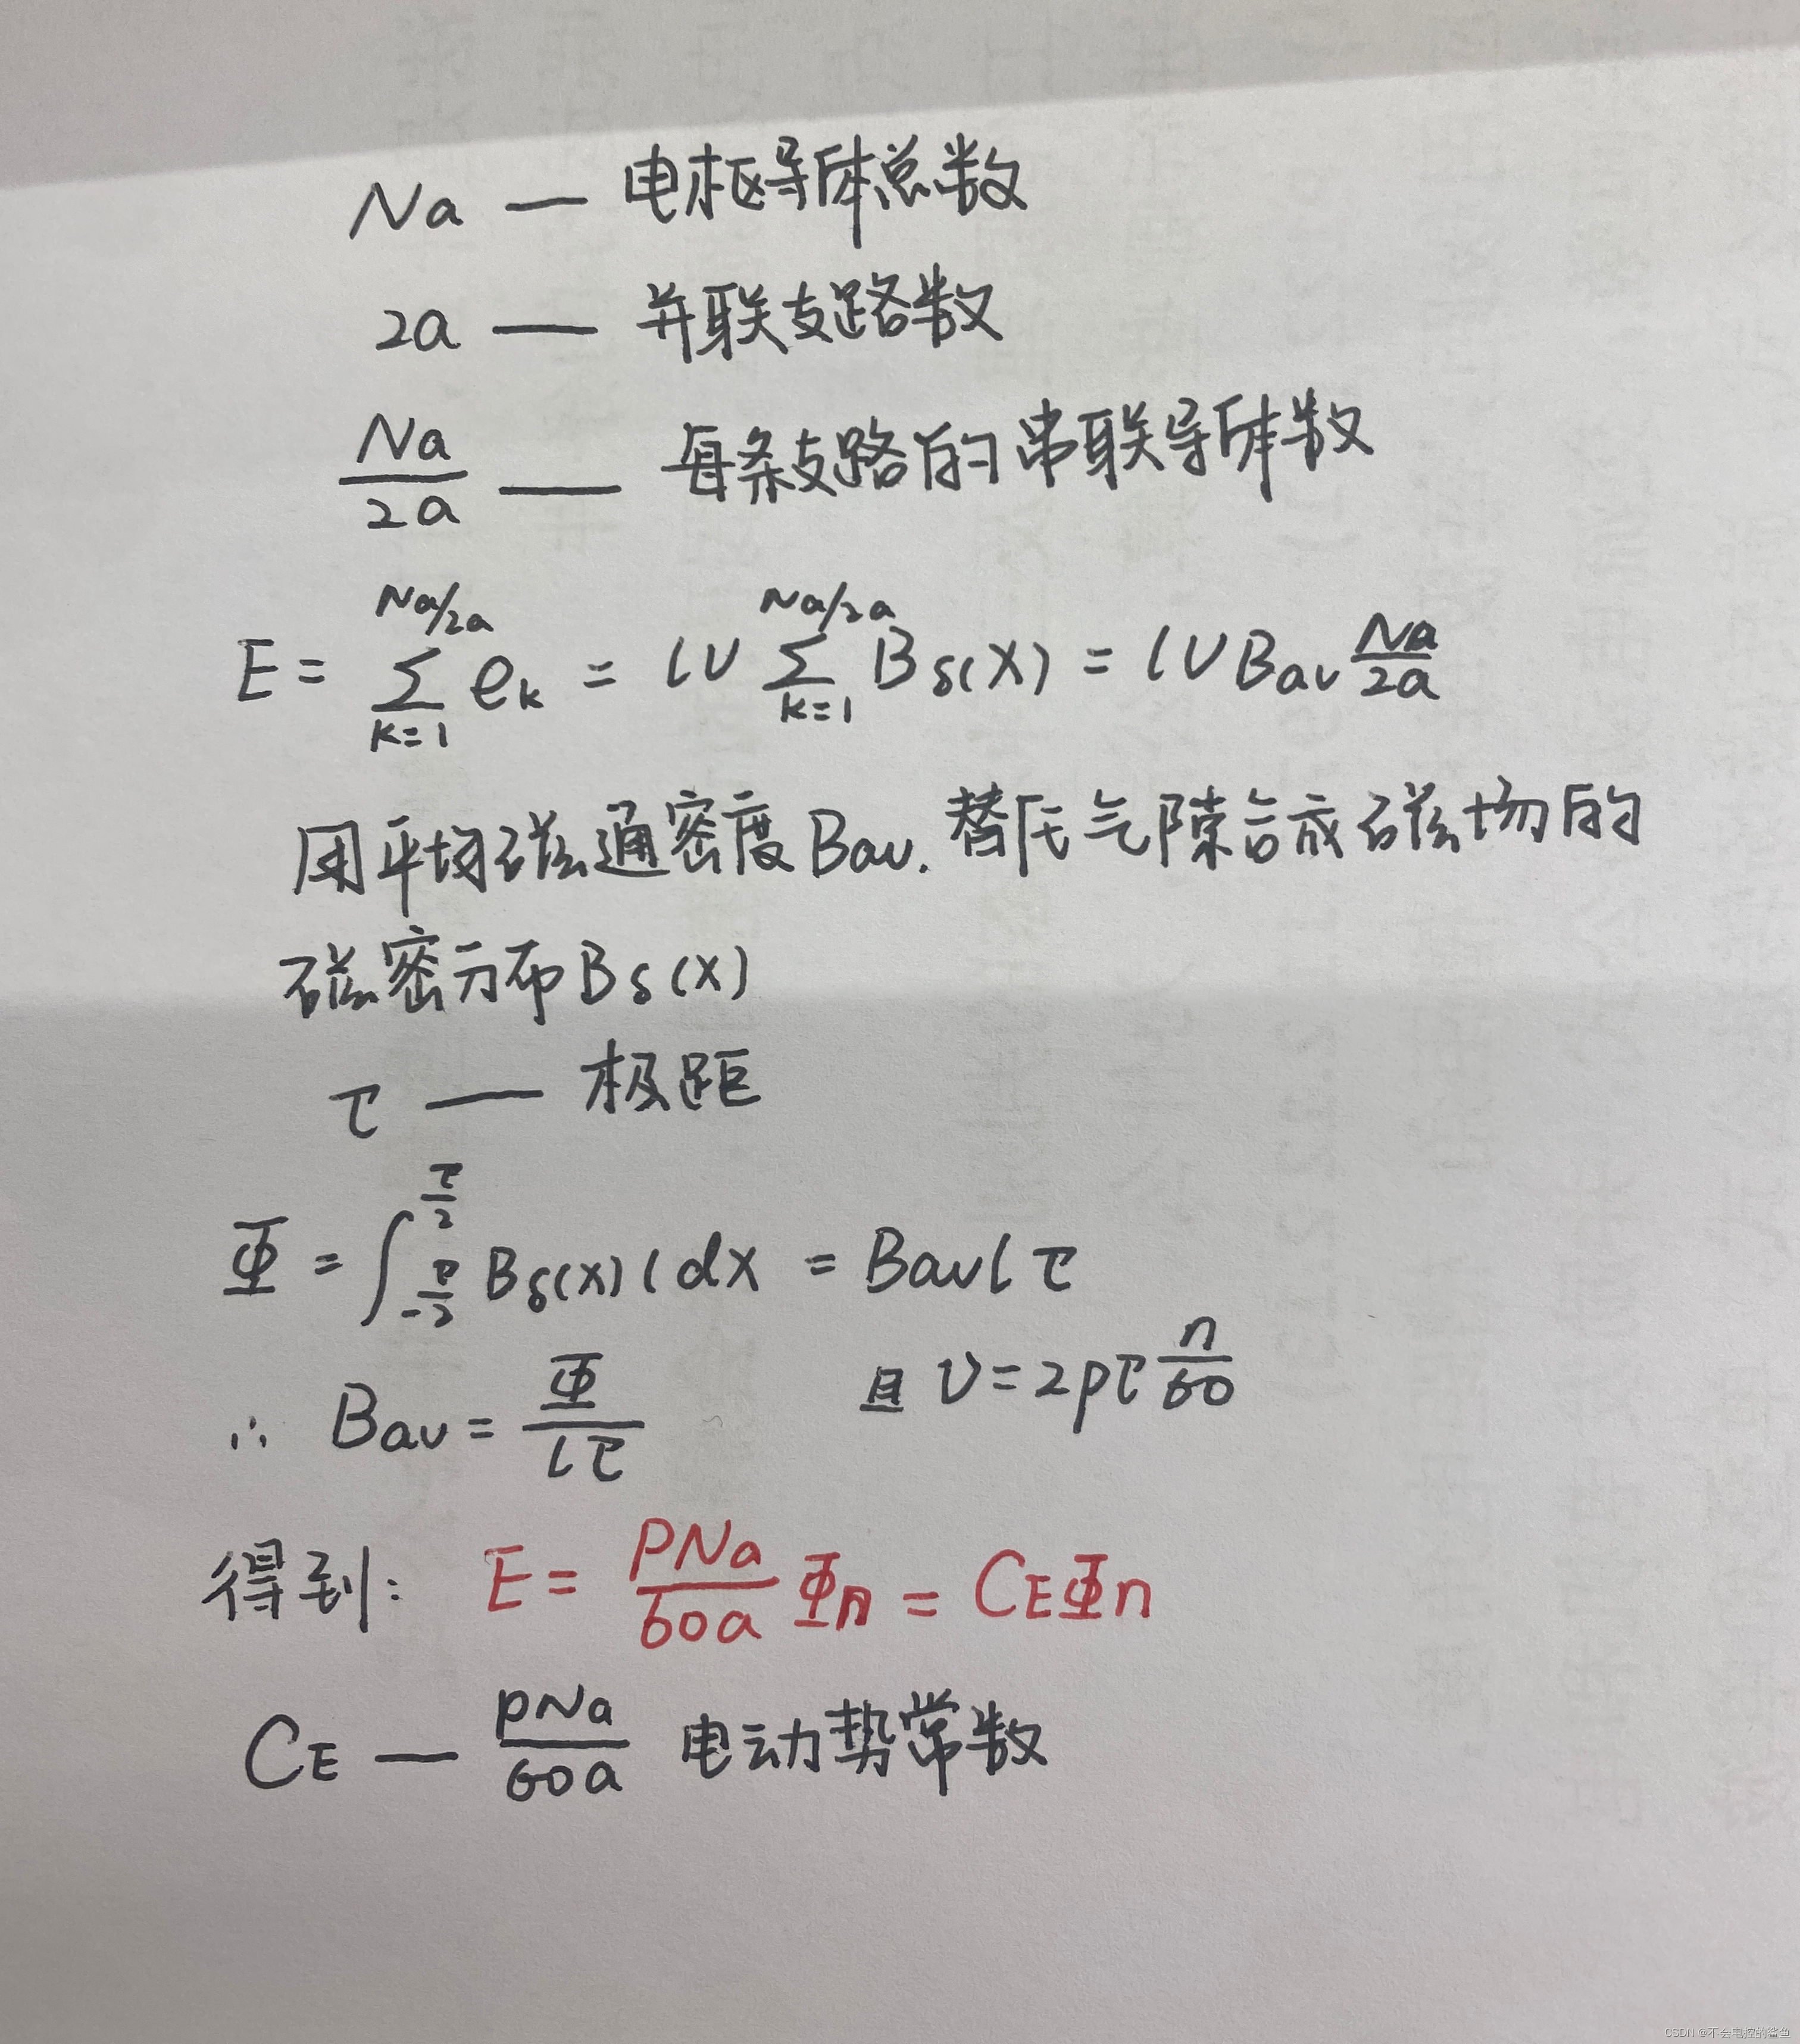 Na — 电枢导体总数
2a — 并联支路数
Na/2a — 每条支路的串联导体数
E = ∑_{k=1}^{Na/2a} e_k = lv ∑_{k=1}^{Na/2a} B_δ(x) = lv Bav Na/2a
用平均磁通密度 Bav. 替代气隙合成磁场的
磁密分布 B_δ(x)
τ — 极距
Φ = ∫_{-τ/2}^{τ/2} B_δ(x) l dx = Bav l τ
∴ Bav = Φ/lτ 且 v = 2pτ n/60
得到: E = PNa/60a Φn = C_EΦn
C_E — PNa/60a 电动势常数
CSDN @不会电控的鲨鱼